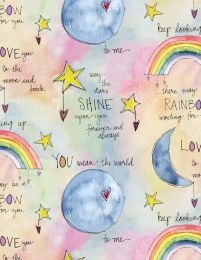 BOW
for you
LOVE you
to the
moon and
back
to me
keep looking
may
the
stars
SHINE
upon you
forever and
always
there may
RAINBOW
waiting for
king up
YOU mean the world
to me
LOVE
to
may be a
BOW
for you
keep looking
LOVE you
to the
to me